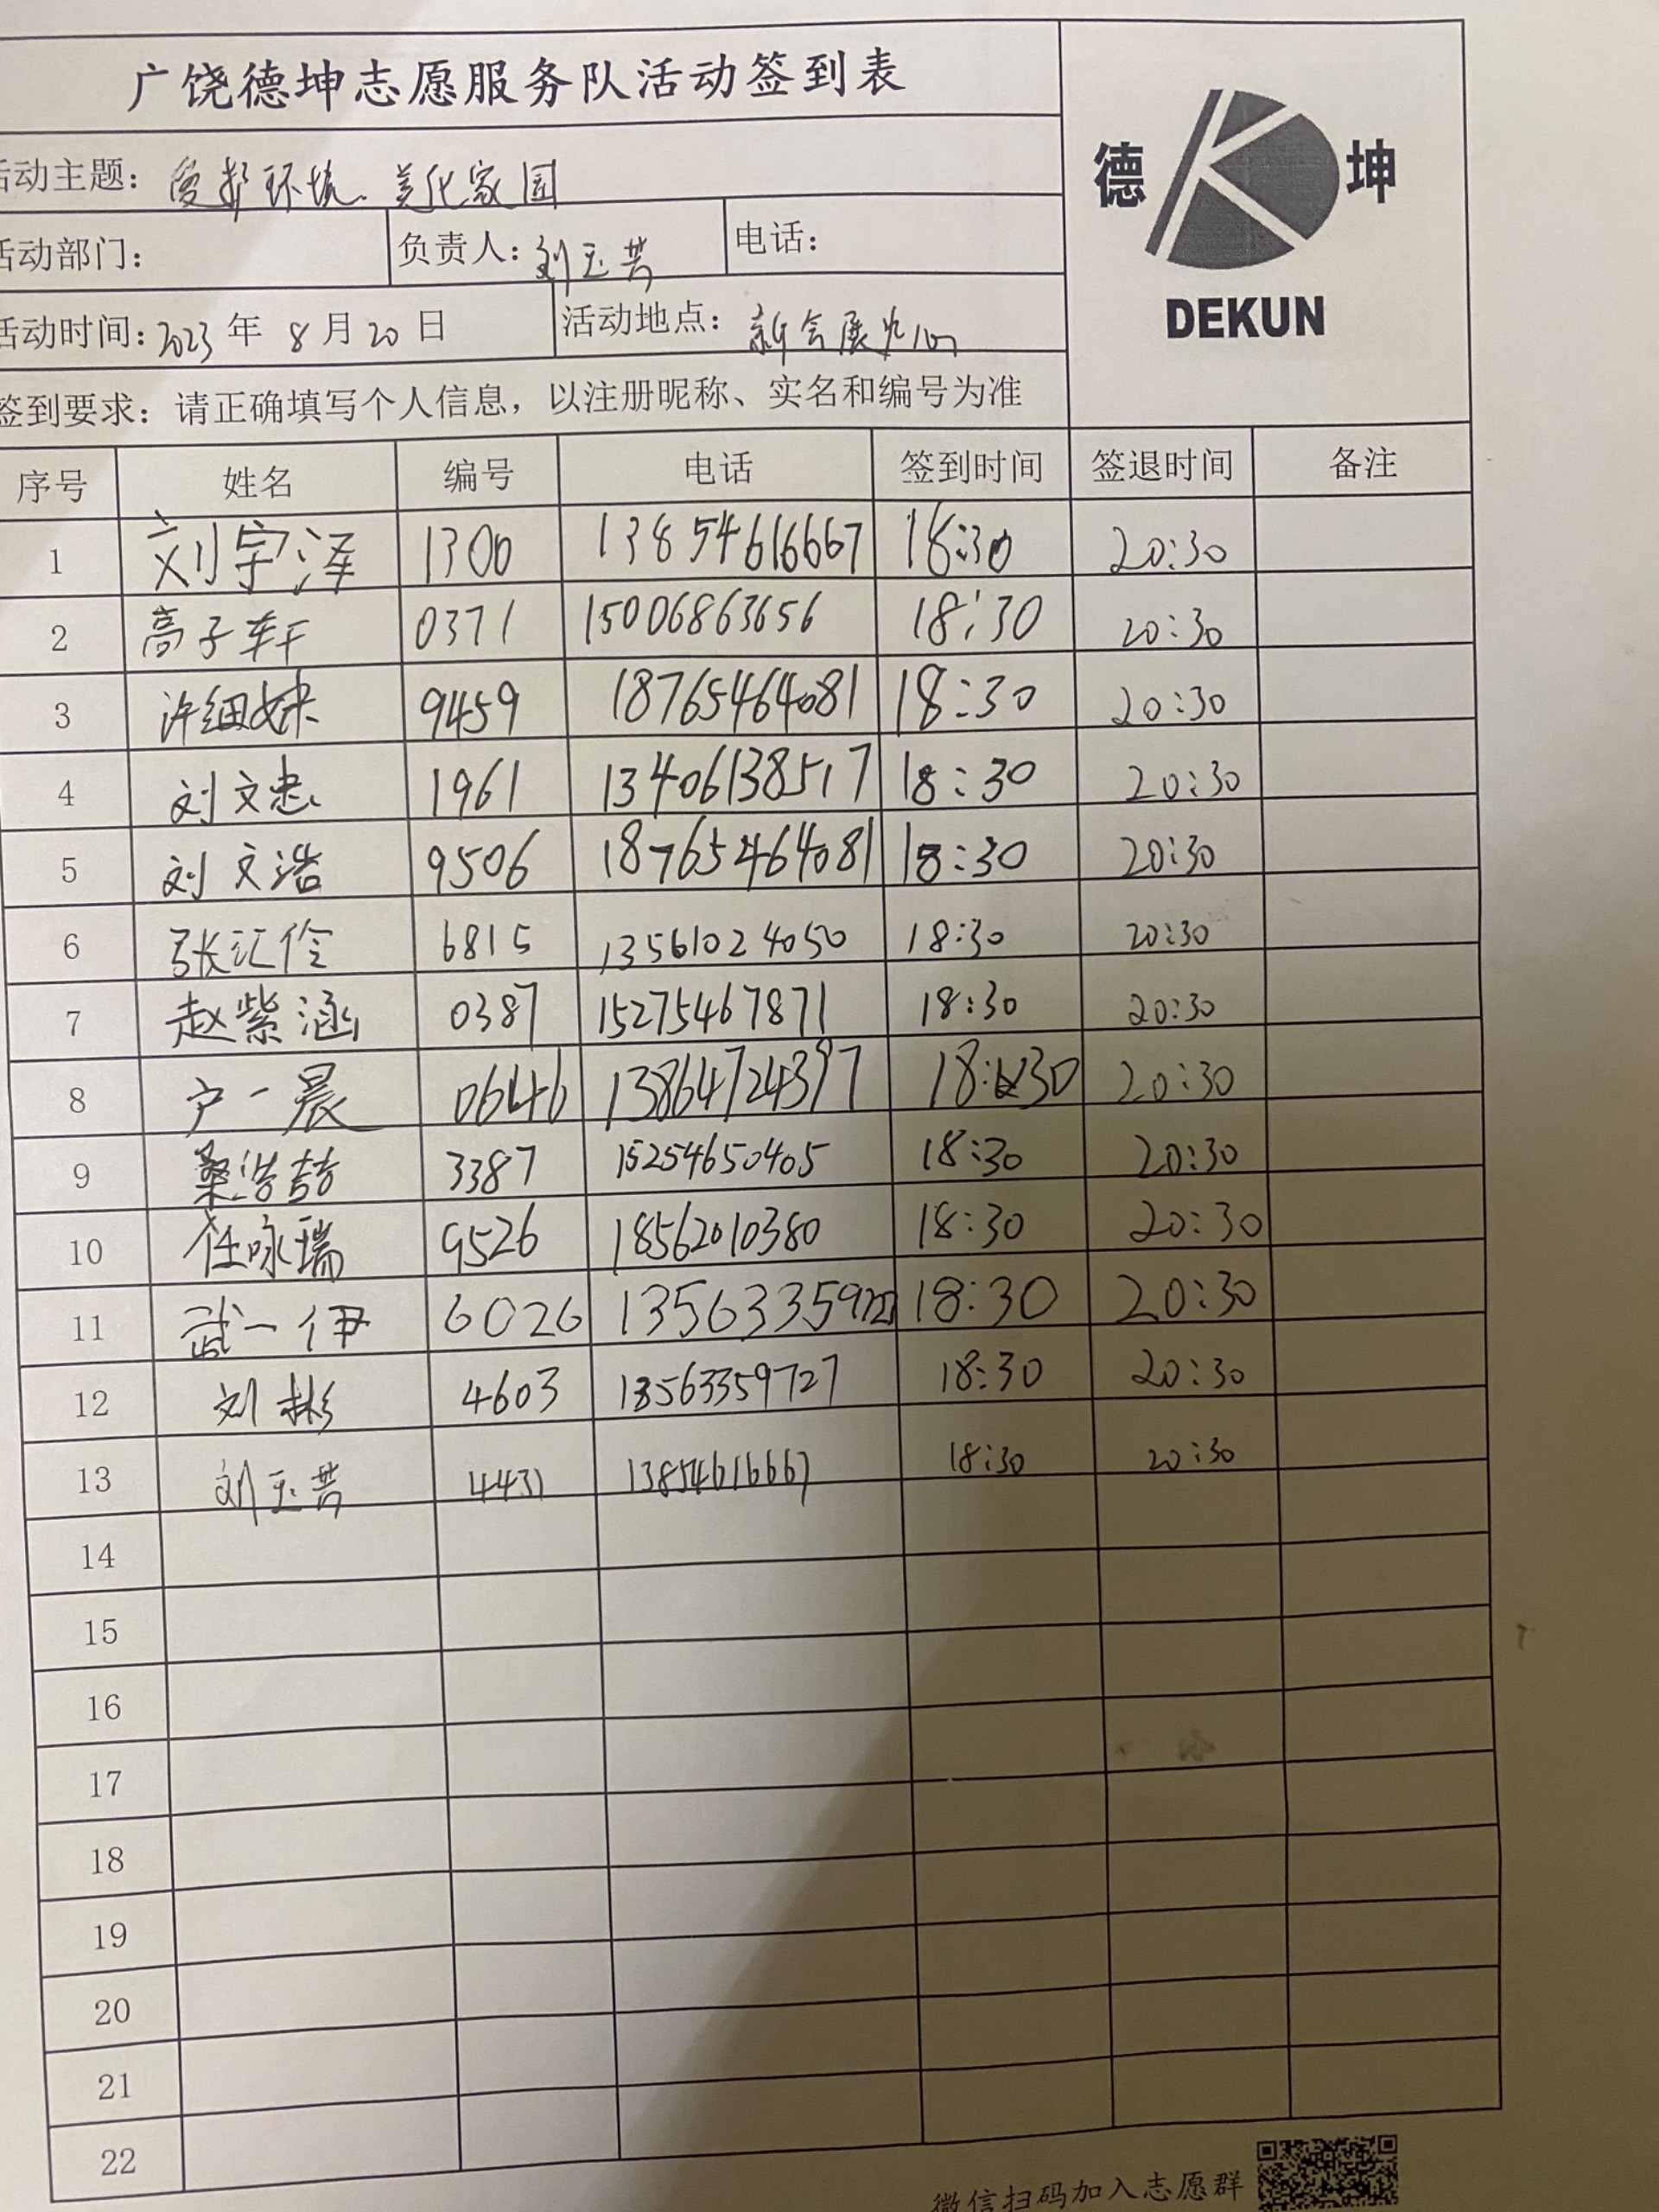 广饶德坤志愿服务队活动签到表
德 坤
DEKUN
活动主题：爱护环境、美化家园
活动部门： 负责人：刘玉芸 电话：
活动时间：2023年8月20日 活动地点：新会展
签到要求：请正确填写个人信息，以注册昵称、实名和编号为准
序号 姓名 编号 电话 签到时间 签退时间 备注
1 刘宇泽 1300 13854616667 18:30 20:30
2 高子轩 0371 15006863656 18:30 20:30
3 许细妹 9459 18765464081 18:30 20:30
4 刘文忠 1961 13406138517 18:30 20:30
5 刘文浩 9506 18765464081 18:30 20:30
6 张汇伶 6815 13561024050 18:30 20:30
7 赵紫涵 0387 15275467871 18:30 20:30
8 户一晨 0646 13864724397 18:30 20:30
9 桑浩喆 3387 15254650405 18:30 20:30
10 任咏瑞 9526 18562010380 18:30 20:30
11 武一伊 6026 13563359727 18:30 20:30
12 刘彬 4603 13563359727 18:30 20:30
13 刘玉芸 4431 13854616667 18:30 20:30
14
15
16
17
18
19
20
21
22
微信扫码加入志愿群